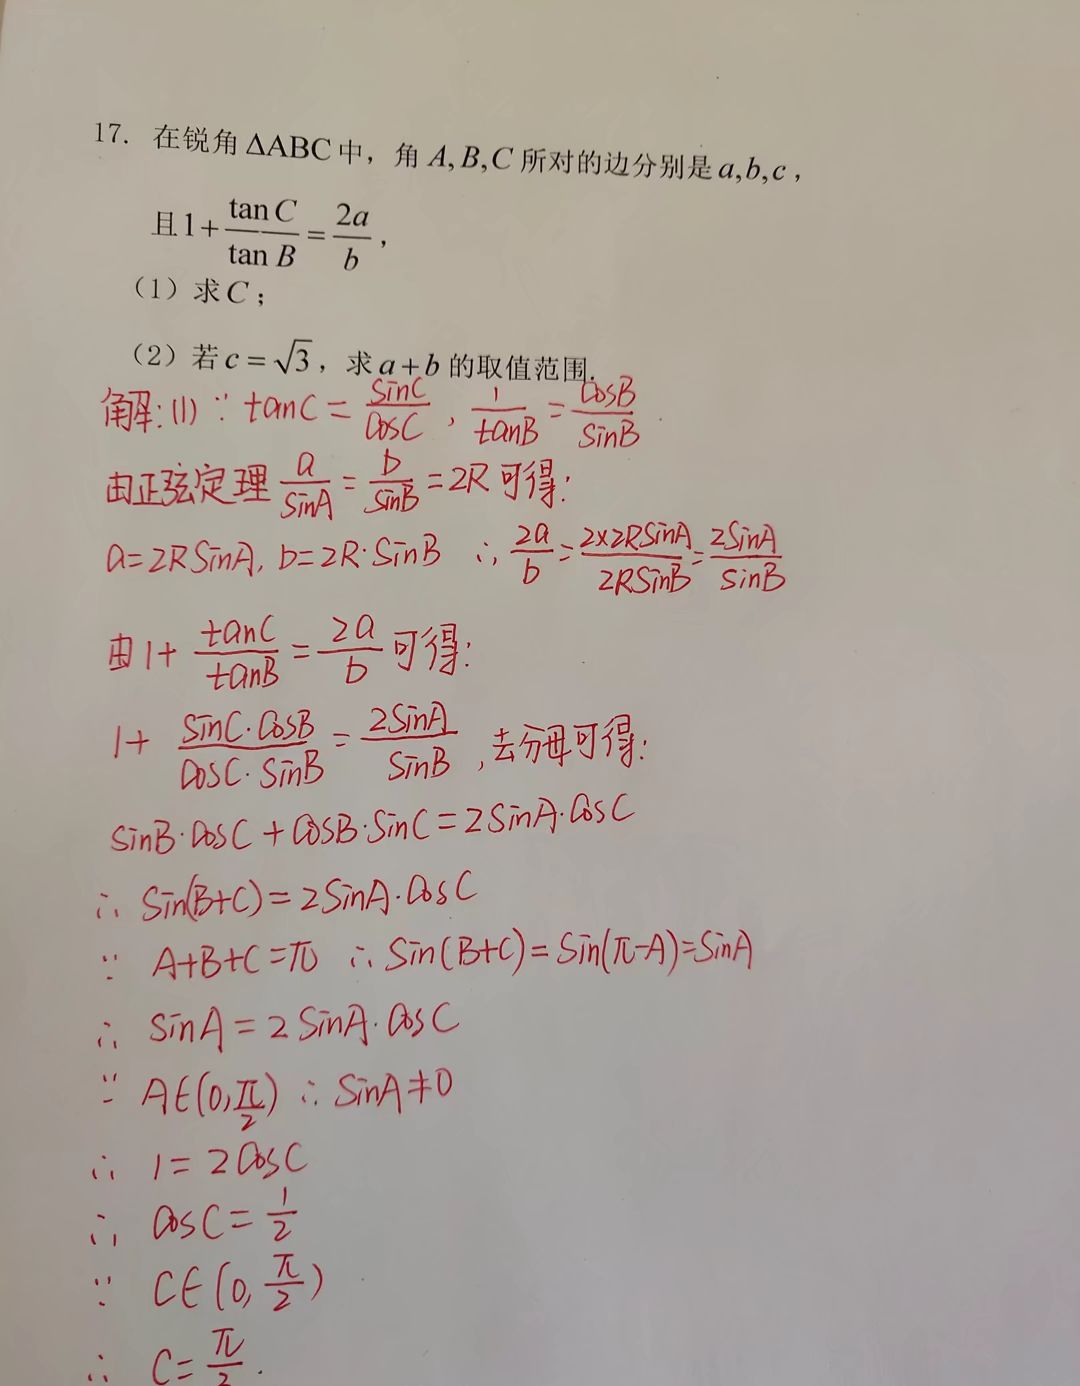 17. 在锐角 ΔABC 中，角 A,B,C 所对的边分别是 a,b,c，
且 1+ tan C / tan B = 2a / b，
（1）求 C；
（2）若 c = √3，求 a+b 的取值范围.
解:(1) ∵ tanC = sinC/cosC , 1/tanB = cosB/sinB
由正弦定理 a/sinA = b/sinB = 2R 可得:
a=2RsinA, b=2R·sinB ∴ 2a/b = 2×2RsinA/2RsinB = 2sinA/sinB
由 1+ tanC/tanB = 2a/b 可得:
1+ sinC·cosB/cosC·sinB = 2sinA/sinB , 去分母可得:
sinB·cosC + cosB·sinC = 2sinA·cosC
∴ sin(B+C) = 2sinA·cosC
∵ A+B+C=π ∴ sin(B+C) = sin(π-A)=sinA
∴ sinA = 2sinA·cosC
∵ A∈(0,π/2) ∴ sinA≠0
∴ 1=2cosC
∴ cosC = 1/2
∵ C∈(0,π/2)
∴ C=π/3.